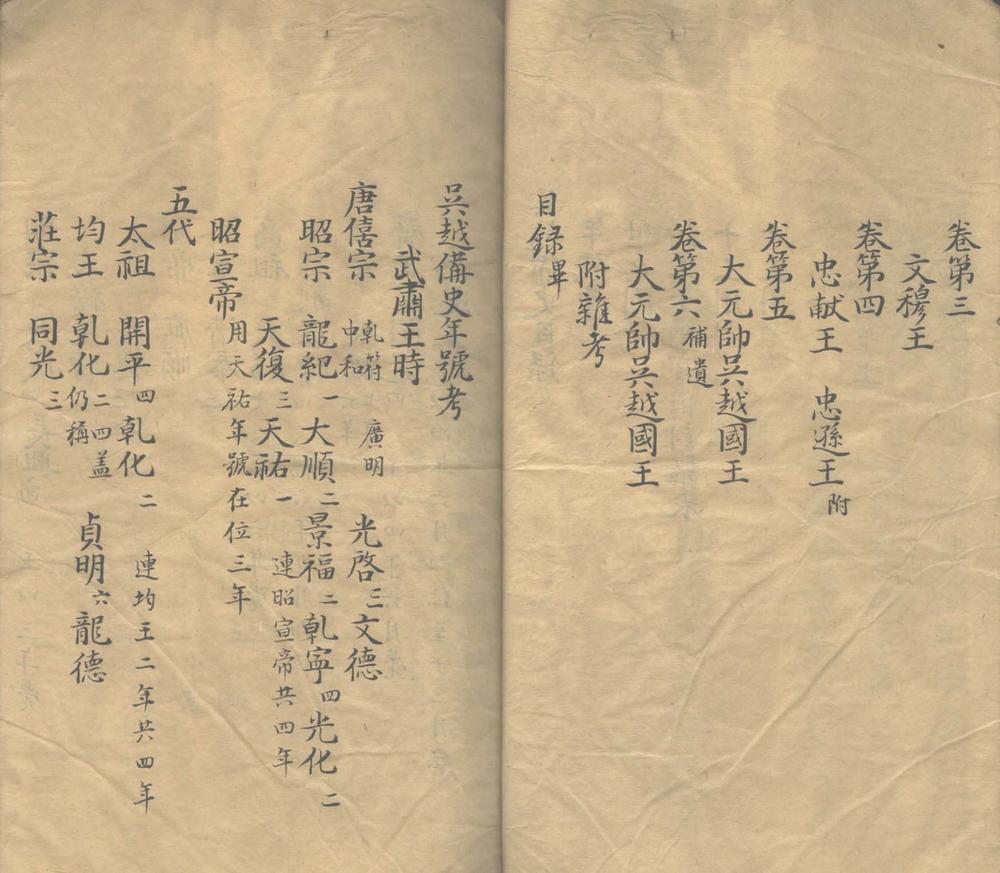 卷第三
文穆王
卷第四
忠献王 忠遜王附
卷第五
大元帥吳越國王
卷第六補遺
大元帥吳越國王
附雜考
目録畢
吳越備史年號考
武肅王時
唐僖宗 乾符 廣明 中和 光啓三 文德
昭宗 龍紀一 大順二 景福二 乹寧四 光化二
天復三 天祐一 連昭宣帝共四年
昭宣帝 用天祐年號在位三年
五代
太祖 開平四 乹化二 連均王二年共四年
均王 乹化二仍稱四盖 貞明六 龍德
莊宗 同光三